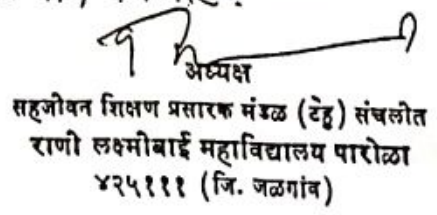 अध्यक्ष
सहजीवन शिक्षण प्रसारक मंडळ (टेहु) संचलीत
राणी लक्ष्मीबाई महाविद्यालय पारोळा
४२५१११ (जि. जळगांव)